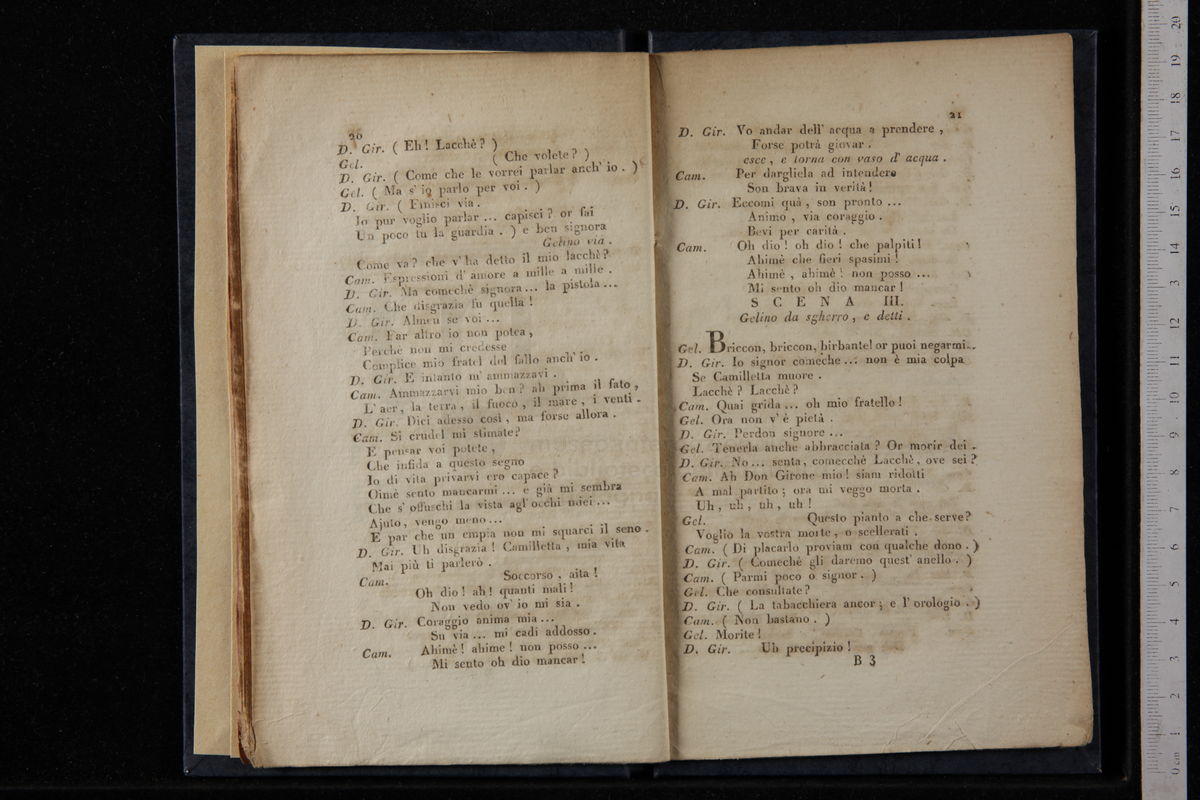 20
D. Gir. ( Eh! Lacchè? )
Gel. ( Che volete? )
D. Gir. ( Come che le vorrei parlar anch' io . )
Gel. ( Ma s' io parlo per voi . )
D. Gir. ( Finisci via .
Io pur voglio parlar ... capisci? or fai
Un poco tu la guardia . ) e ben signora
Gelino via .
Come va? che v' ha detto il mio lacchè?
Cam. Espressioni d' amore a mille a mille .
D. Gir. Ma comechè signora ... la pistola ...
Cam. Che disgrazia fu quella !
D. Gir. Almen se voi ...
Cam. Far altro io non potea ,
Perchè non mi credesse
Complice mio fratel del fallo anch' io .
D. Gir. E intanto m' ammazzavi .
Cam. Ammazzarvi mio ben? ah prima il fato ,
L' aer, la terra, il fuoco , il mare , i venti .
D. Gir. Dici adesso così , ma forse allora .
Cam. Sì crudel mi stimate?
E pensar voi potete ,
Che infida a questo segno
Io di vita privarvi ero capace ?
Oimè sento mancarmi ... e già mi sembra
Che s' offuschi la vista agl' occhi miei ...
Ajuto , vengo meno ...
E par che un empia non mi squarci il seno .
D. Gir. Uh disgrazia ! Camilletta , mia vita
Mai più ti parlerò .
Cam. Soccorso , aita !
Oh dio ! ah ! quanti mali !
Non vedo ov' io mi sia .
D. Gir. Coraggio anima mia ...
Su via ... mi cadi addosso .
Cam. Ahimè ! ahime ! non posso ...
Mi sento oh dio mancar !
21
D. Gir. Vo andar dell' acqua a prendere ,
Forse potrà giovar .
esce , e torna con vaso d' acqua .
Cam. Per dargliela ad intendere
Son brava in verità !
D. Gir. Eccomi quà , son pronto ...
Animo , via coraggio .
Bevi per carità .
Cam. Oh dio ! oh dio ! che palpiti !
Ahimè che fieri spasimi !
Ahimè , ahimè ! non posso ...
Mi sento oh dio mancar !
SCENA III.
Gelino da sgherro , e detti .
Gel. Briccon, briccon, birbante! or puoi negarmi...
D. Gir. Io signor comeche ... non è mia colpa
Se Camilletta muore .
Lacchè ? Lacchè ?
Cam. Quai grida ... oh mio fratello !
Gel. Ora non v' è pietà .
D. Gir. Perdon signore ...
Gel. Tenerla anche abbracciata ? Or morir dei .
D. Gir. No ... senta, comecchè Lacchè, ove sei ?
Cam. Ah Don Girone mio ! siam ridotti
A mal partito ; ora mi veggo morta .
Uh , uh , uh , uh !
Gel. Questo pianto a che serve?
Voglio la vostra morte , o scellerati .
Cam. ( Di placarlo proviam con qualche dono . )
D. Gir. ( Comechè gli daremo quest' anello . )
Cam. ( Parmi poco o signor . )
Gel. Che consultate ?
D. Gir. ( La tabacchiera ancor ; e l' orologio . )
Cam. ( Non bastano . )
Gel. Morite !
D. Gir. Uh precipizio !
B 3
20
19
18
17
16
15
14
13
12
11
10
9
8
7
6
5
4
3
2
1
0 cm